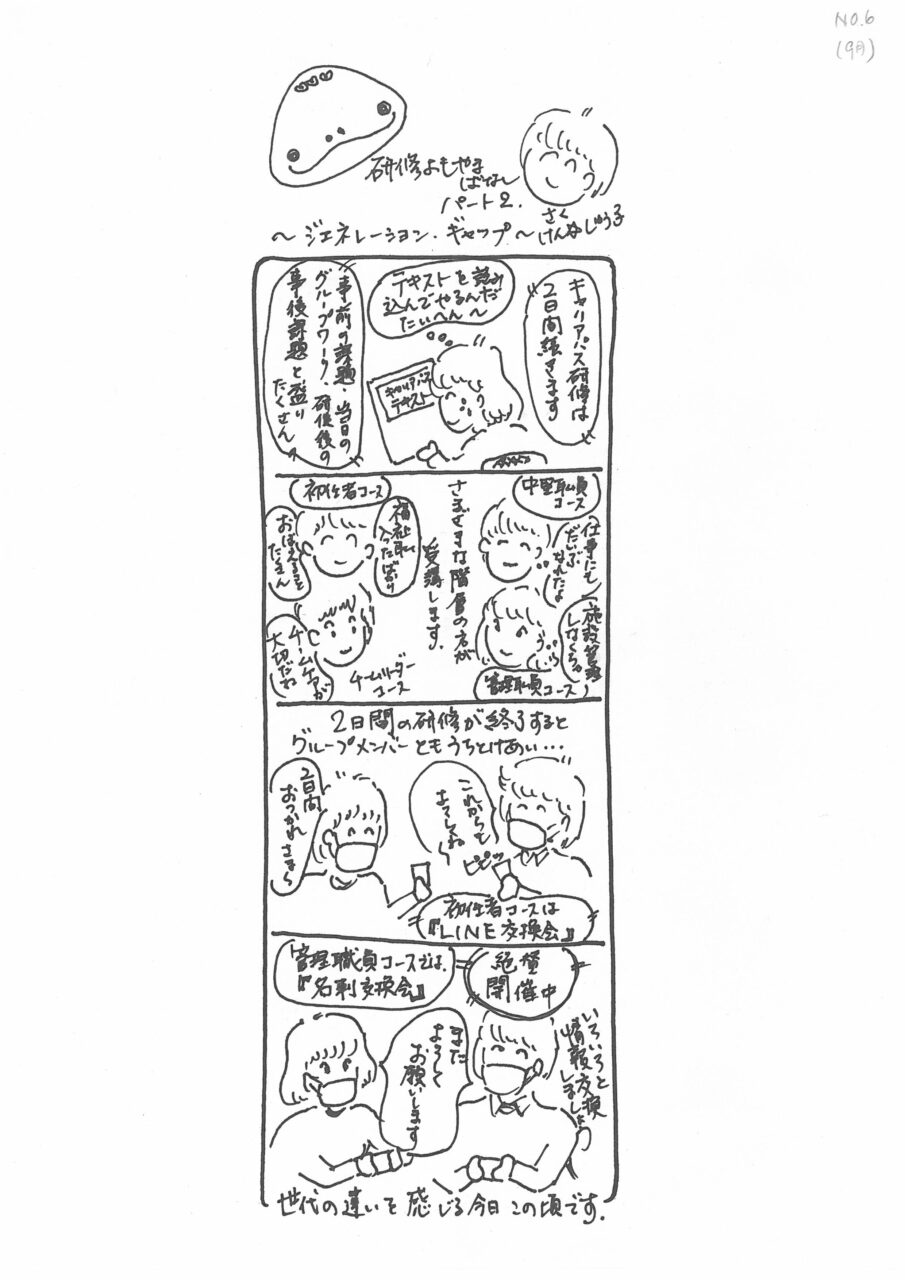 NO.6
(9月)
研修よもやま
ばなし
パート2.
さく
けんなじゅう子
~ジェネレーション・ギャップ~
キャリアパス研修は
2日間続きます
テキストを読み
込んでやるんだ
たいへん~
キャリアパス
テキスト
事前の課題・当日の
グループワーク、研修後の
事後課題と盛り
たくさん
中堅職員
コース
仕事にも
だいぶ
なれたよ
施設管理
しなくちゃ
管理職員コース
さまざまな階層の方が
受講します。
初任者コース
福祉職
入ったばかり
おぼえること
たくさん
チームケアが
大切だね
チームリーダー
コース
2日間の研修が終了すると
グループメンバーともうちとけあい…
これからも
よろしくね~
ピピッ
2日間
おつかれさま~
初任者コースは
『LINE交換会』
管理職員コースでは、
『名刺交換会』
絶賛
開催中
いろいろと
情報交換
しましょ
また
よろしく
お願いします
世代の違いを感じる今日この頃です.